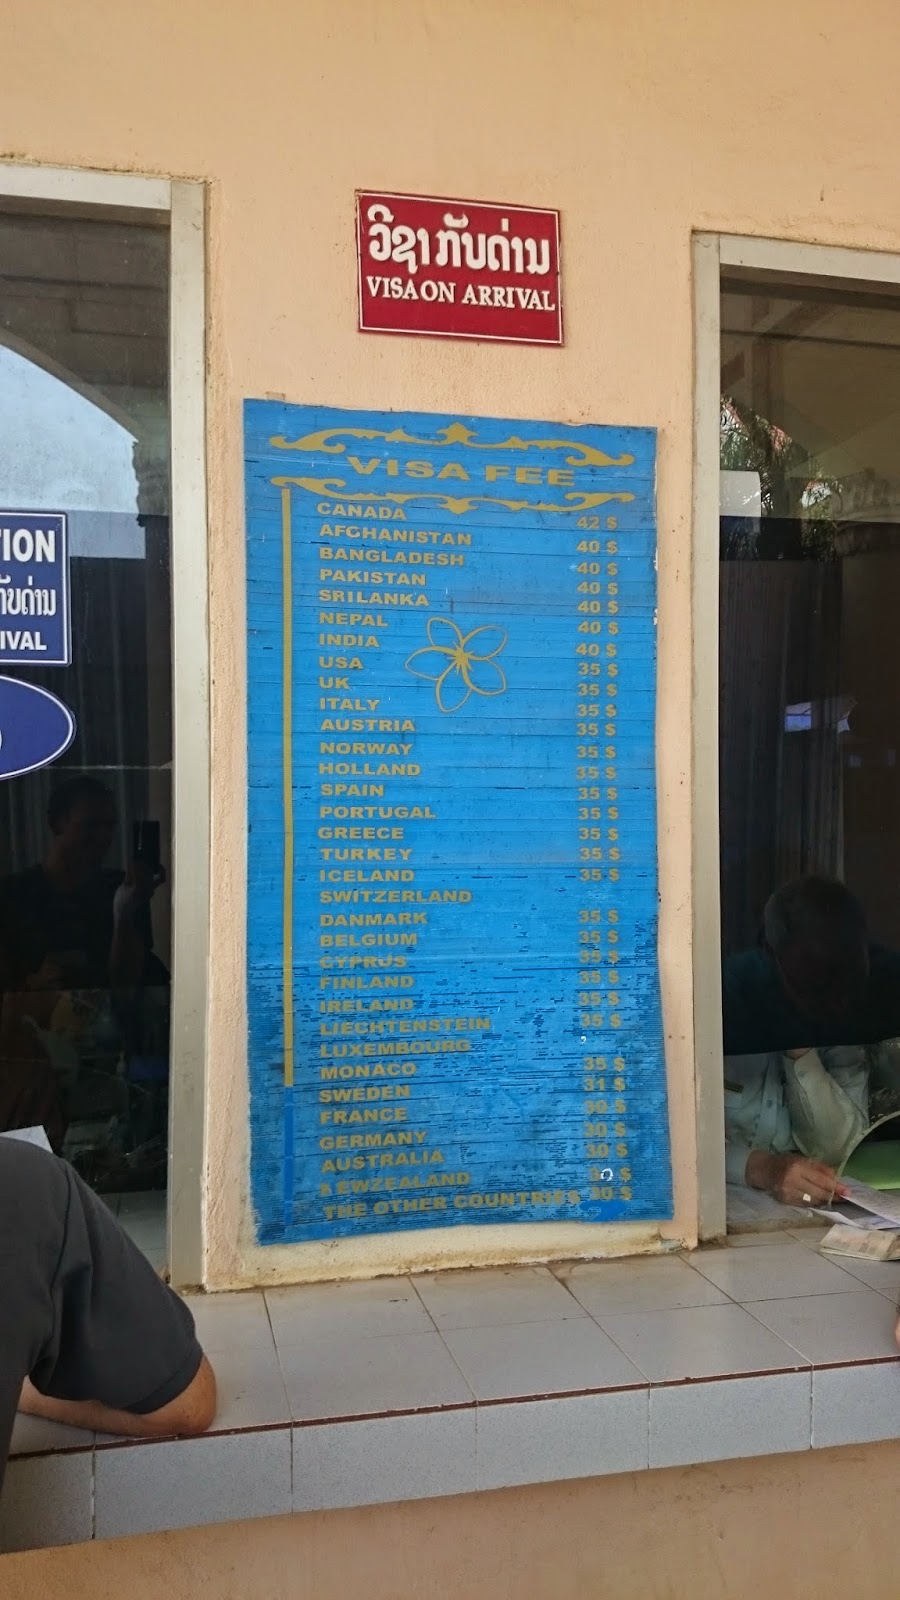 ວີຊາ ກັບດ່ານ
VISA ON ARRIVAL
TION
ກັບດ່ານ
IVAL
VISA FEE
CANADA 42 $
AFGHANISTAN 40 $
BANGLADESH 40 $
PAKISTAN 40 $
SRILANKA 40 $
NEPAL 40 $
INDIA 40 $
USA 35 $
UK 35 $
ITALY 35 $
AUSTRIA 35 $
NORWAY 35 $
HOLLAND 35 $
SPAIN 35 $
PORTUGAL 35 $
GREECE 35 $
TURKEY 35 $
ICELAND 35 $
SWITZERLAND
DANMARK 35 $
BELGIUM 35 $
CYPRUS 35 $
FINLAND 35 $
IRELAND 35 $
LIECHTENSTEIN 35 $
LUXEMBOURG
MONACO 35 $
SWEDEN 31 $
FRANCE 30 $
GERMANY 30 $
AUSTRALIA 30 $
NEWZEALAND 30 $
THE OTHER COUNTRIES 30 $